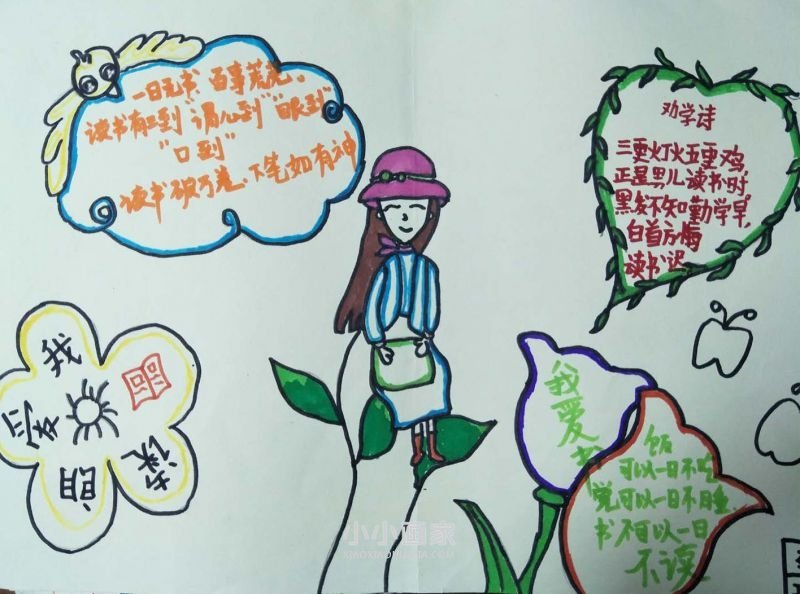 一日无书、百事荒芜。
读书有三到"谓心到""眼到"
"口到"
读书破万卷、下笔如有神
劝学诗
三更灯火五更鸡
正是男儿读书时
黑发不知勤学早,
白首方悔
读书迟
我
爱
朗
读
我爱书
饭
可以一日不吃
觉可以一日不睡
书不可以一日
不读
小小画家
XIAOXIAOHUAJIA.COM